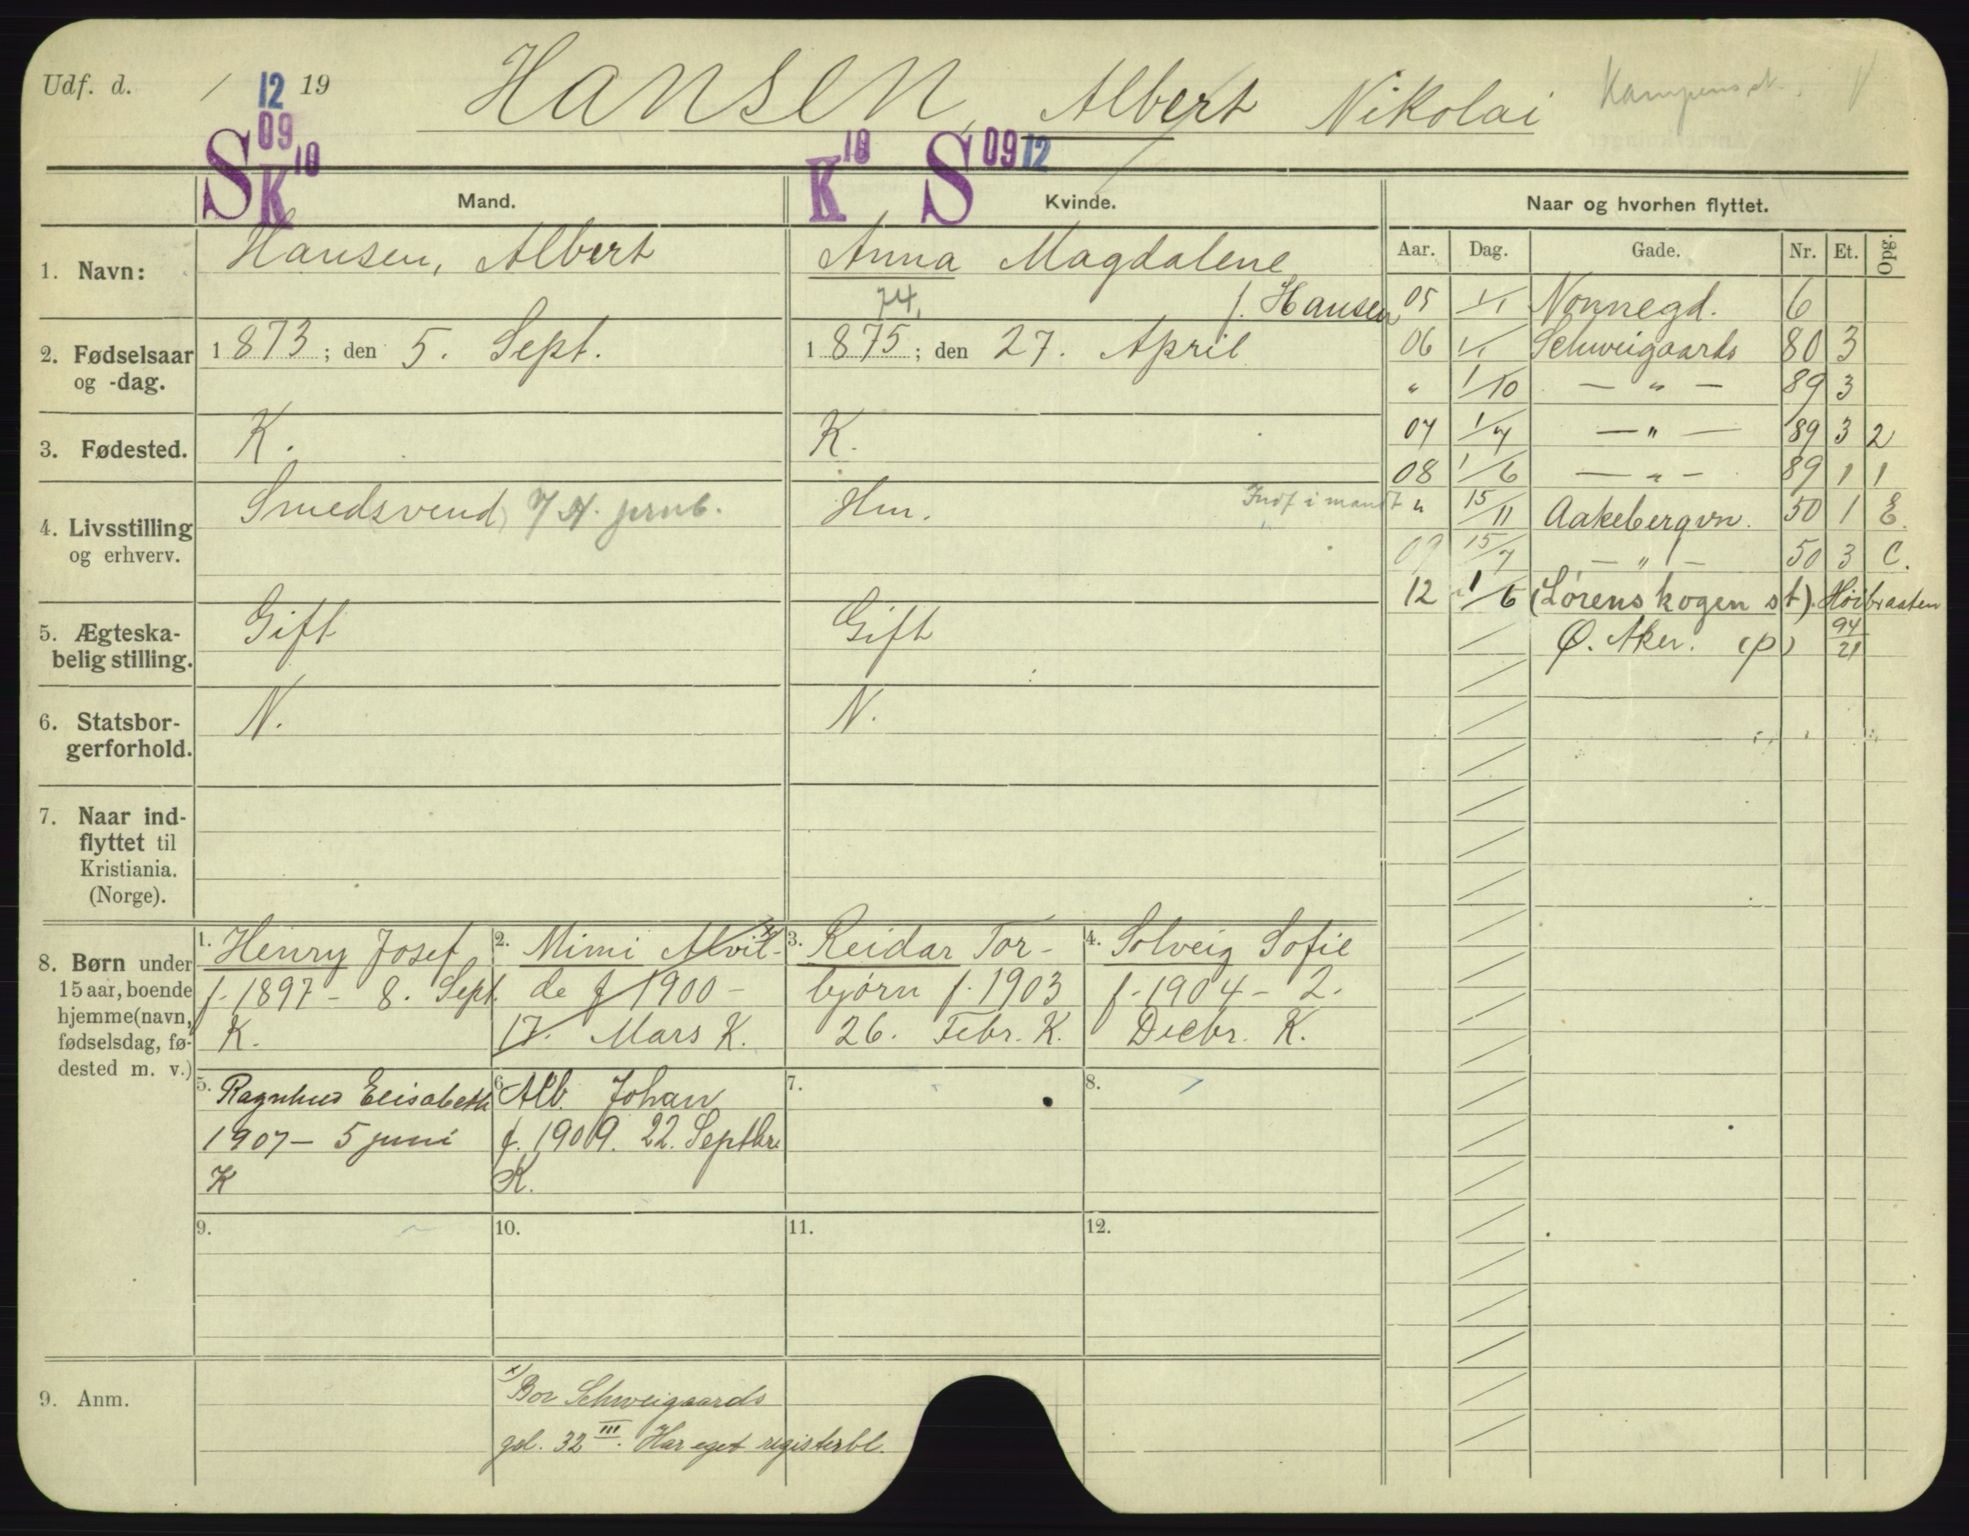 Udf. d. / 12 19
Hansen, Albert Nikolai
Kampens st. V
S 09 K 10
K 10 S 09 12
Mand.
Kvinde.
Naar og hvorhen flyttet.
Aar. Dag. Gade. Nr. Et. Opg.
1. Navn:
Hansen, Albert
Anna Magdalene
f. Hansen
2. Fødselsaar
og -dag.
1873; den 5. Sept.
74,
1875; den 27. April
3. Fødested.
K.
K.
4. Livsstilling
og erhverv.
Smedsvend
Hm.
5. Ægteska-
belig stilling.
Gift
Gift
6. Statsbor-
gerforhold.
N.
N.
7. Naar ind-
flyttet til
Kristiania.
(Norge).
05 1/1 Nonnegd. 6
06 1/1 Schweigaards 80 3
" 1/10 — " — 89 3
07 1/7 — " — 89 3 2
08 1/6 — " — 89 1 1
Indf i mandt " 15/11 Aakebergvn. 50 1 E.
09 15/7 — " — 50 3 C.
12 1/6 (Lørenskogen st). Høibraaten
Ø. Aker. (p) 94/21
8. Børn under
15 aar, boende
hjemme (navn,
fødselsdag, fø-
dested m. v.)
1. Henry Josef
f. 1897 - 8. Sept.
K.
2. Mimi Alvil- x
de f 1900 -
17. Mars K.
3. Reidar Tor-
bjørn f. 1903
26. Febr. K.
4. Solveig Sofie
f. 1904 - 2.
Decbr. K.
5. Ragnhild Elisabeth
1907 - 5 juni
K
6. Alb. Johan
f. 1909. 22. Septbr.
K.
7.
8.
9.
10.
11.
12.
9. Anm.
x) Bor Schweigaards
gd. 32 III. Har eget registerbl.